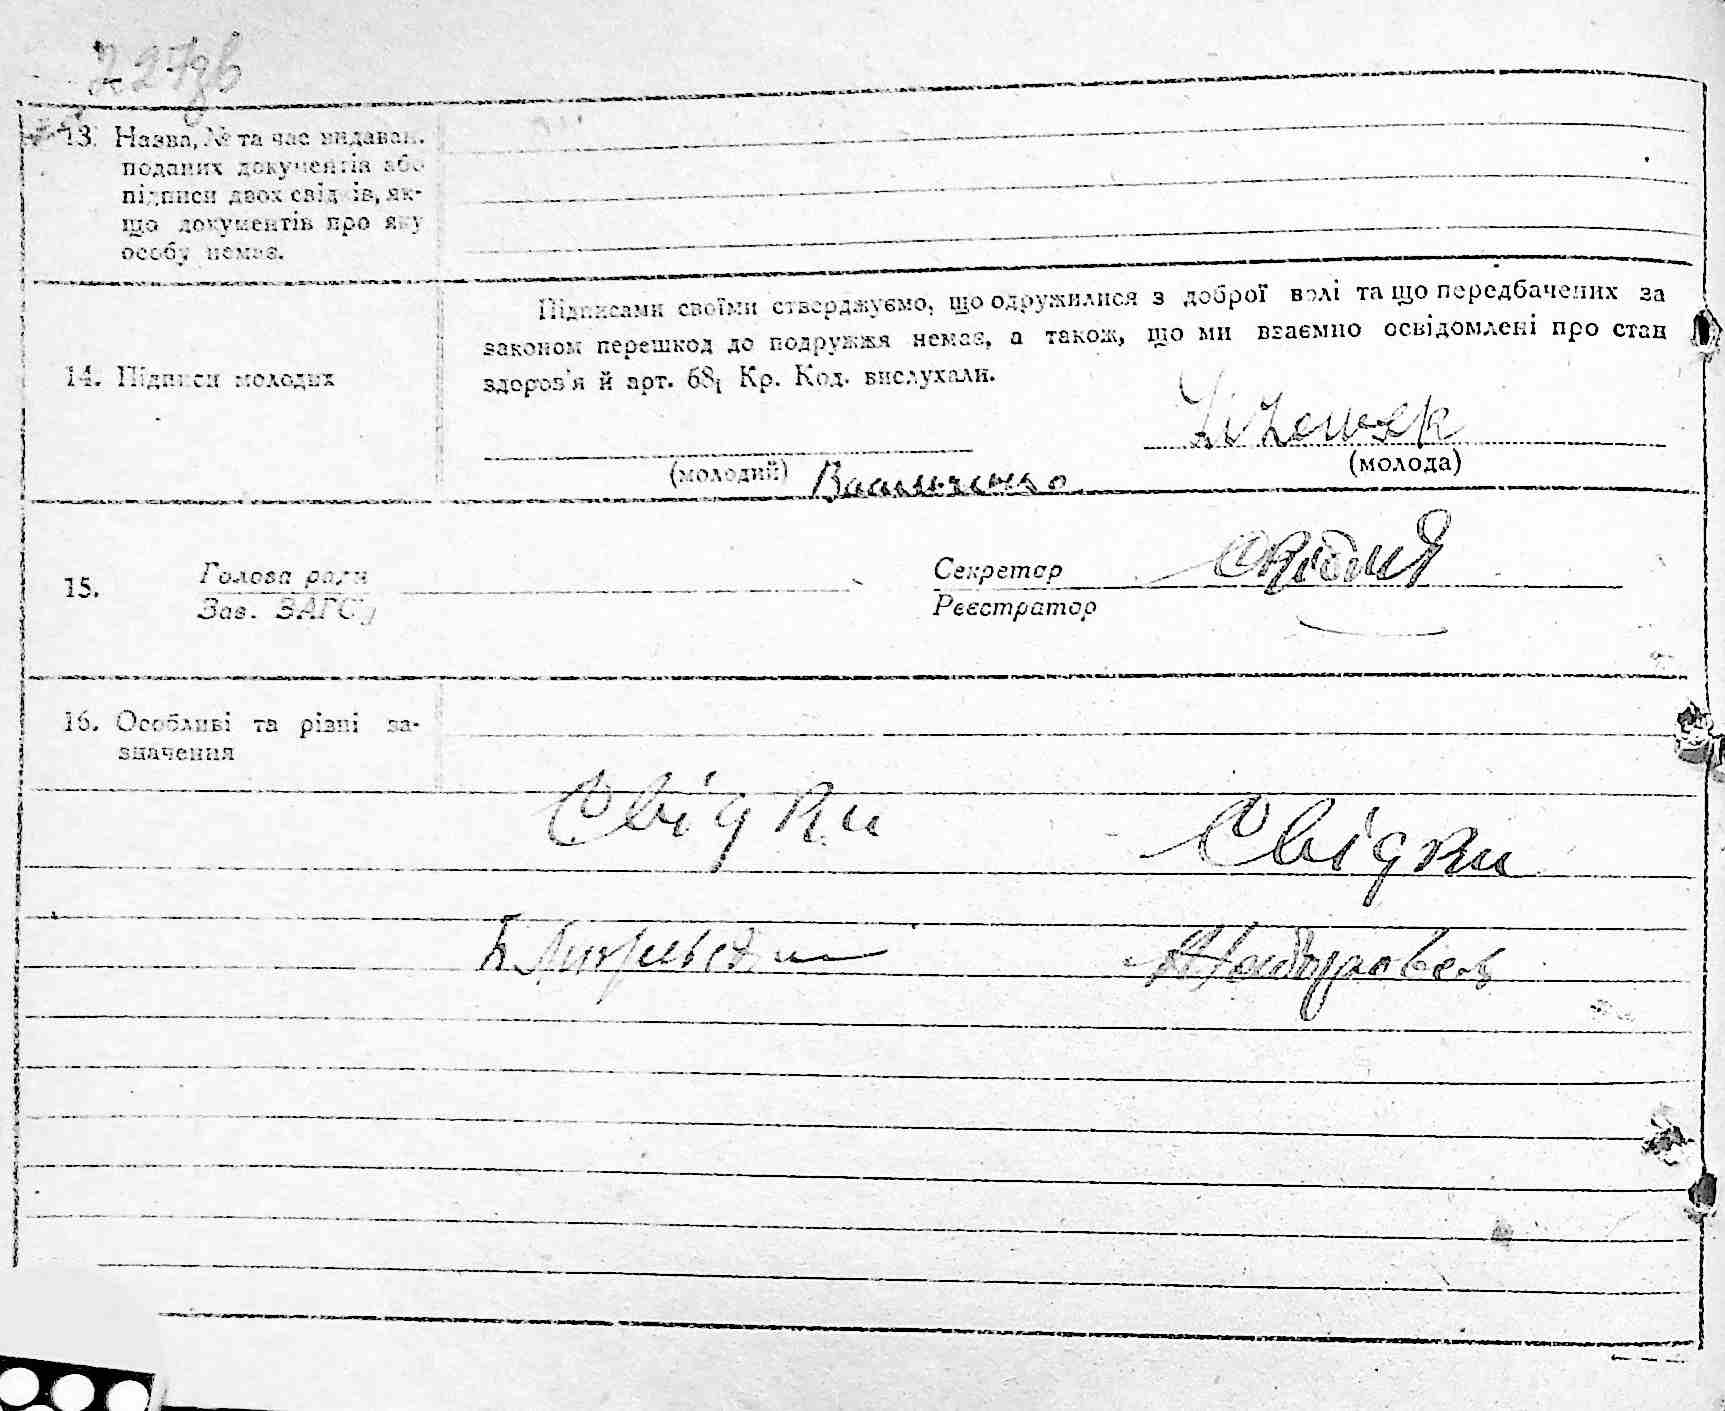 227зв
13. Назва, № та час видаван.
поданих документів або
підписи двох свідків, як-
що документів про яку
особу немає.
Підписами своїми стверджуємо, що одружилися з доброї волі та що передбачених за
законом перешкод до подружжя немає, а також, що ми взаємно освідомлені про стан
14. Підписи молодих
здоров'я й арт. 68₁ Кр. Код. вислухали.
(молодий) Васильченко
(молода)
15.
Голова ради
Зав. ЗАГС'у
Секретар
Реєстратор
16. Особливі та різні за-
значення
Свідки
Свідки